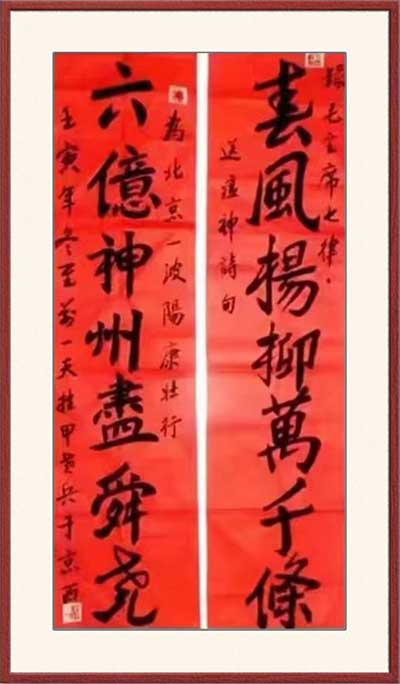 録毛主席七律·
春風楊柳萬千條
送瘟神詩句
為北京一波陽康壯行
六億神州盡舜堯
壬寅年冬至前一天挂甲老兵于京西